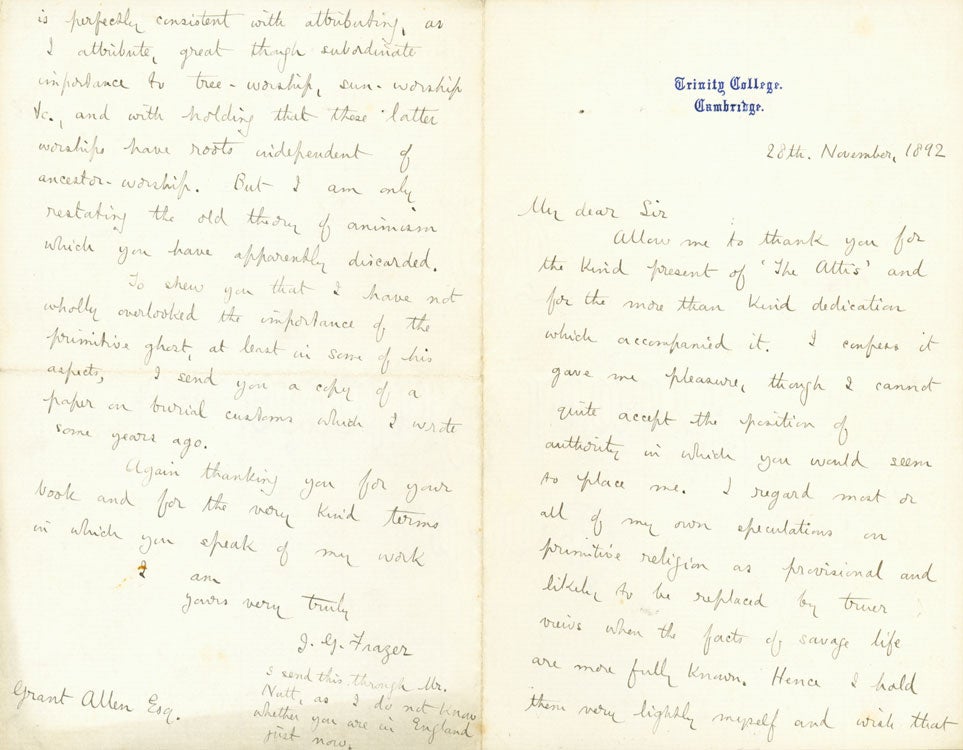 Trinity College.
Cambridge.
28th. November, 1892
My dear Sir
Allow me to thank you for
the kind present of 'The Attis' and
for the more than kind dedication
which accompanied it. I confess it
gave me pleasure, though I cannot
quite accept the position of
authority in which you would seem
to place me. I regard most or
all of my own speculations on
primitive religion as provisional and
likely to be replaced by truer
views when the facts of savage life
are more fully known. Hence I hold
them very lightly myself and wish that
is perfectly consistent with attributing, as
I attribute, great though subordinate
importance to tree-worship, sun-worship
&c., and with holding that these latter
worships have roots independent of
ancestor-worship. But I am only
restating the old theory of animism
which you have apparently discarded.
To shew you that I have not
wholly overlooked the importance of the
primitive ghost, at least in some of his
aspects, I send you a copy of a
paper on burial customs which I wrote
some years ago.
Again thanking you for your
book and for the very kind terms
in which you speak of my work
I am
yours very truly
J. G. Frazer
Grant Allen Esq.
I send this through Mr.
Nutt, as I do not know
whether you are in England
just now.